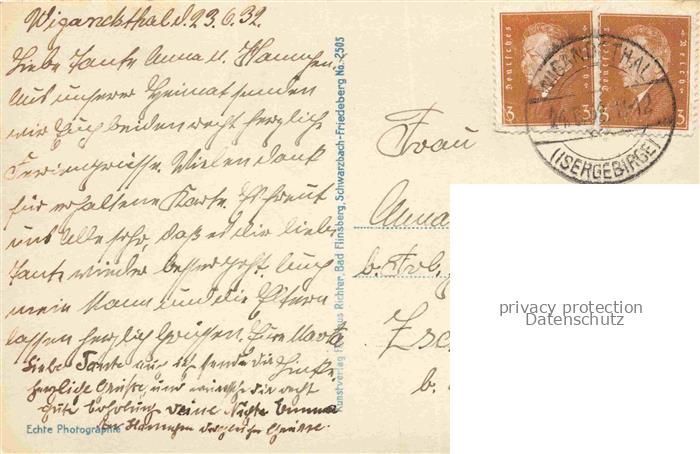 Wigandsthal d. 23.6.32.
Liebe Tante Anna u. Hannchen.
Aus unserer Heimat senden
wir Euch beiden recht herzliche
Feriengrüsse. Vielen Dank
für erhaltene Karte. Es freut
uns alle sehr, daß es dir liebe
Tante wieder besser geht. Auch
mein Mann und die Eltern
lassen herzlich Grüssen. Eure Marta
Liebe Tante auch ich sende die
herzliche Grüsse und wünsche dir recht
gute Erholung deine Nichte Emma
Hannchen Grüsse.
Echte Photographie
Kunstverlag Richter, Bad Flinsberg, Schwarzbach-Friedeberg No. 2505
Deutsches Reich
3
Deutsches Reich
3
WIGANDSTHAL
(ISERGEBIRGE)
Frau
Anna
b.
b.
privacy protection
Datenschutz